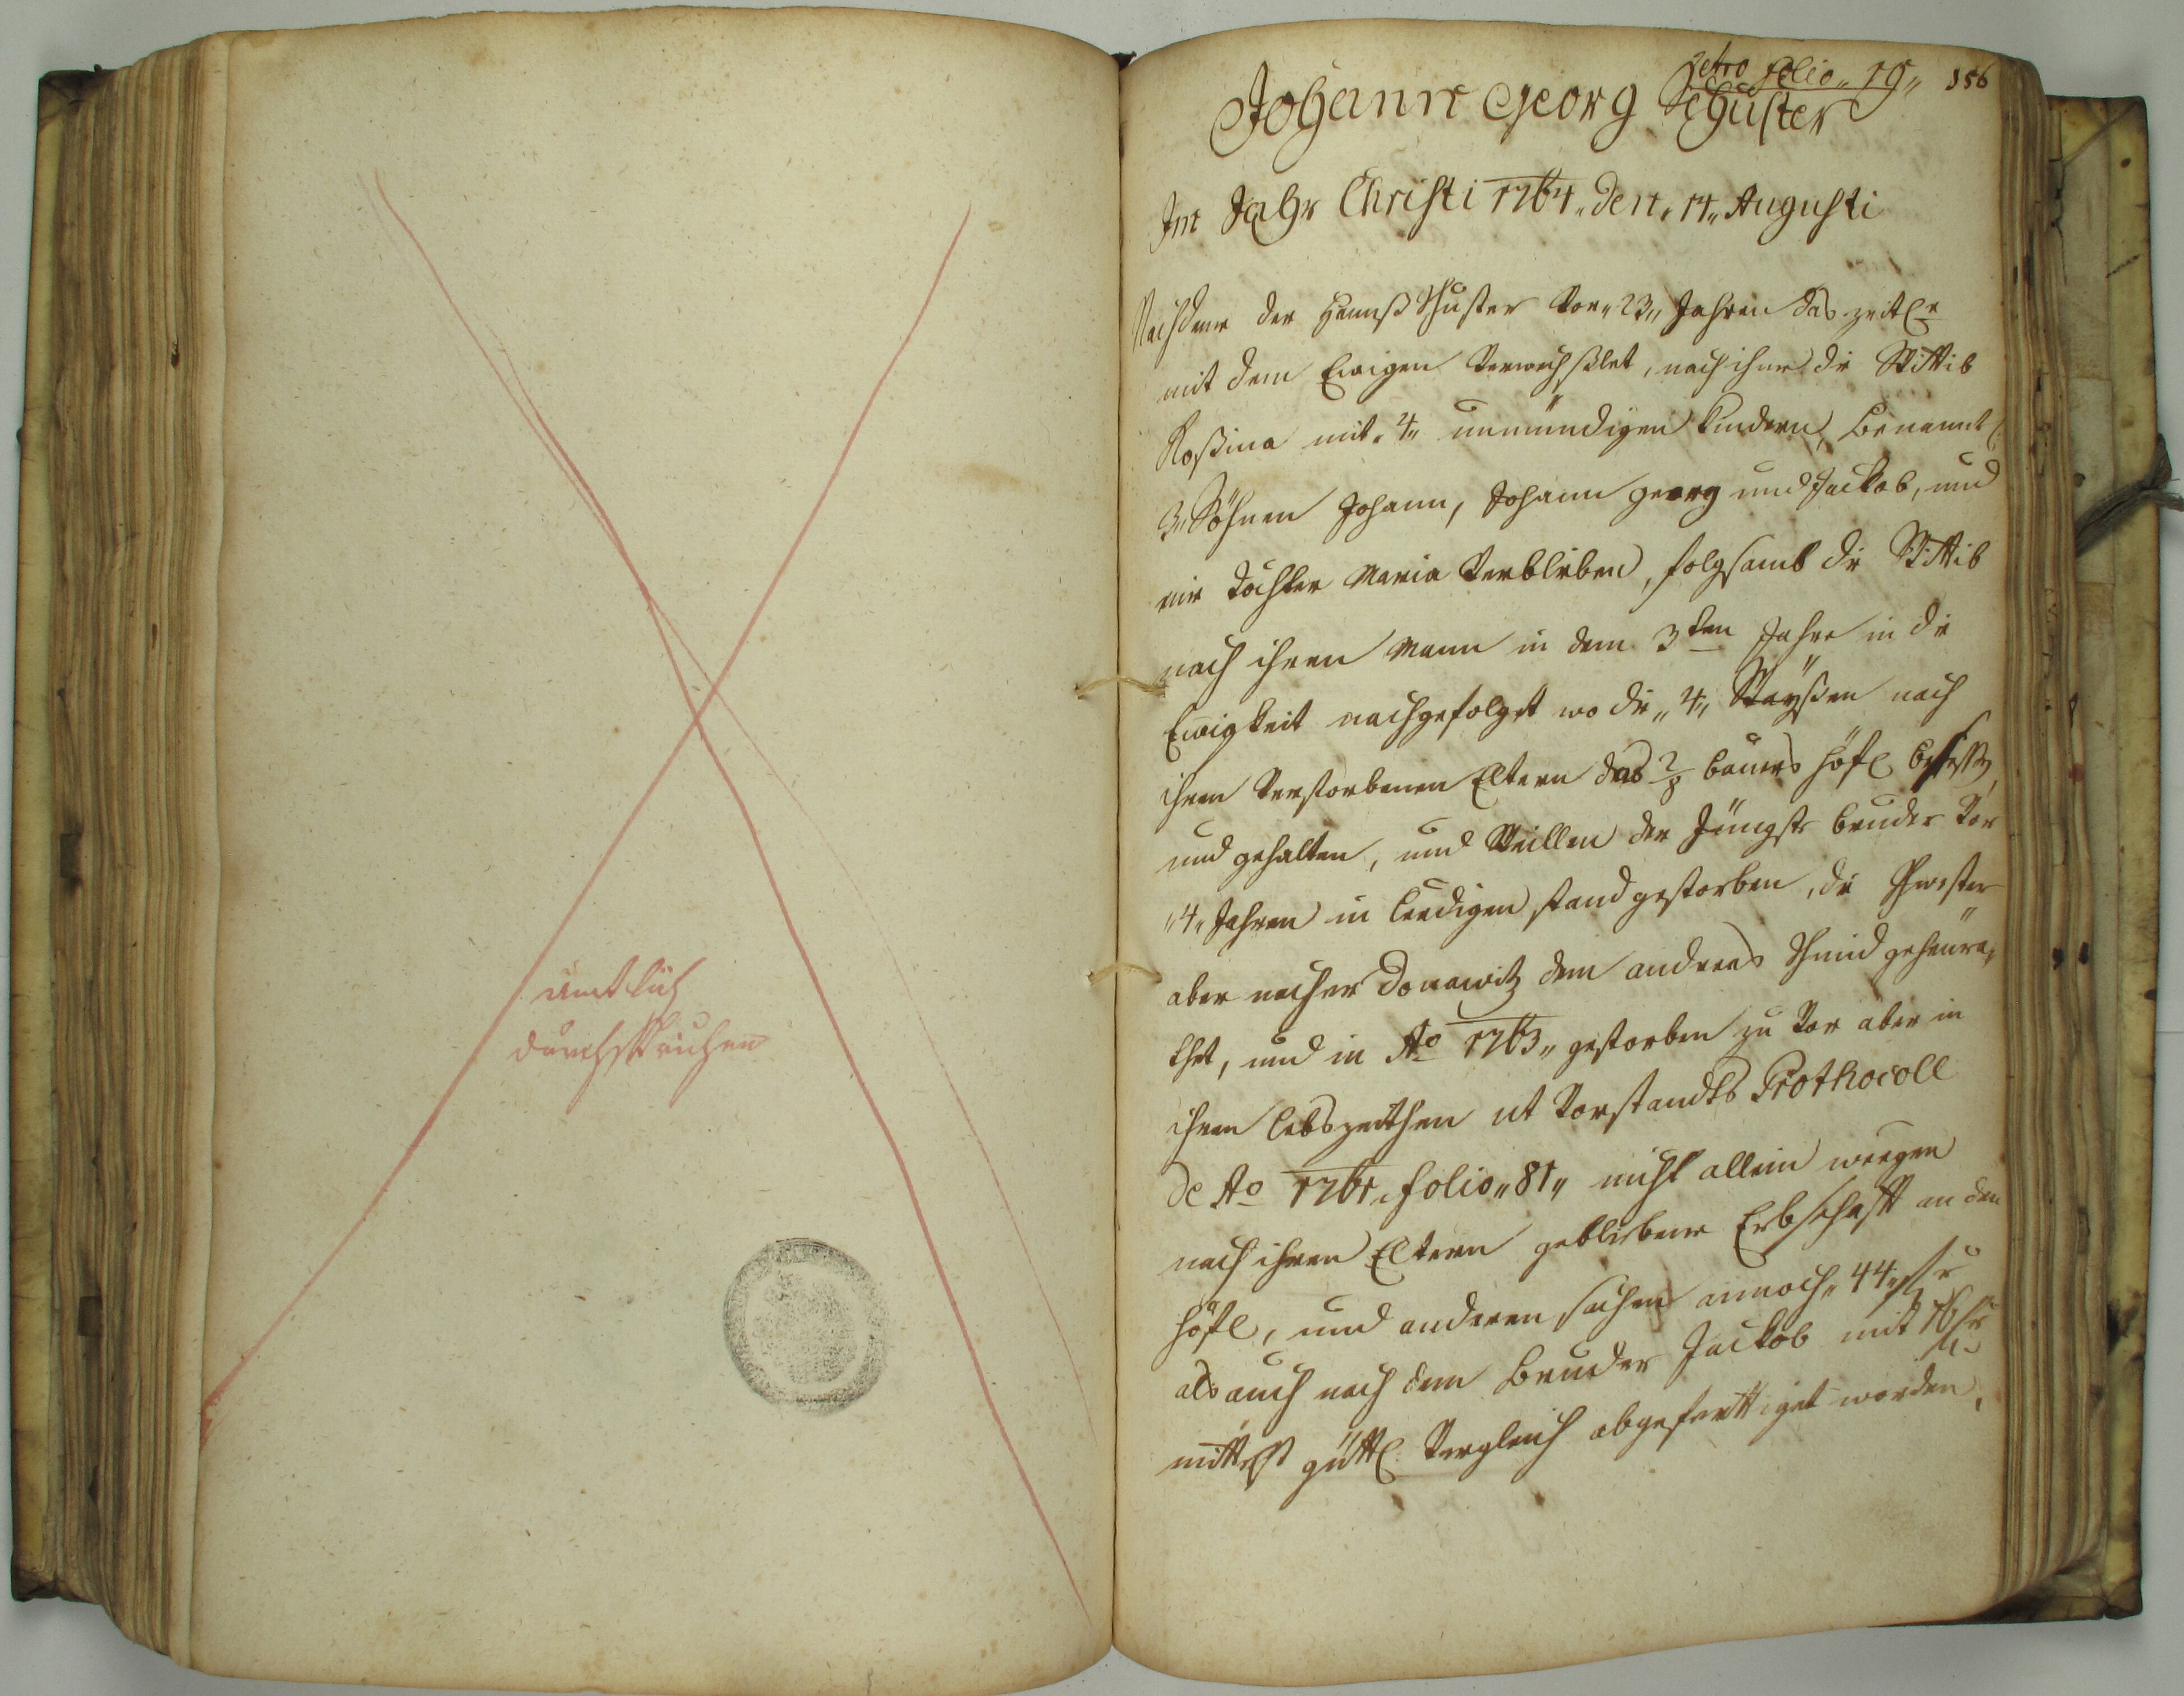 amtlich
durchstrichen
retro folio „ 19 „ 156
Johann Georg Schuster
Im Jahr Christi 1764 „ den „ 14 „ Augusti
Nachdeme der Hannß Schuster vor „ 23 „ Jahren das zeitl:
mit dem Ewigen verwechßlet, nach ihme die Wittib
Roßina mit „ 4 „ unmündigen kindern, benannt:
3 „ Söhnen Johann, Johann georg und Jackob, und
ein Tochter Maria verblieben, folgsamb die Wittib
nach ihren Mann in dem 3ten Jahre in die
Ewigkeit nachgefolget wo die „ 4 „ Wayßen nach
ihren verstorbenen Eltern das 2/8 bauers höfl
und gehalten, und Weillen der Jüngste bruder vor
„ 4 „ Jahren in leedigen stand gestorben, die Schwester
aber nacher Donawitz dem andreas Schmid geheüra„
thet, und in Ao 1763 „ gestorben zu vor aber in
ihren lebszeithen ut Vorstandts Prothocoll
de Ao 1761 „ folio „ 81 „ nicht allein weegen
nach ihren Eltern gebliebener Erbschafft an den
höfl, und anderen sachen annoch „ 44 „
als auch nach dem bruder Jackob mit
mittelst güttl: Vergleich abgeferttiget worden,